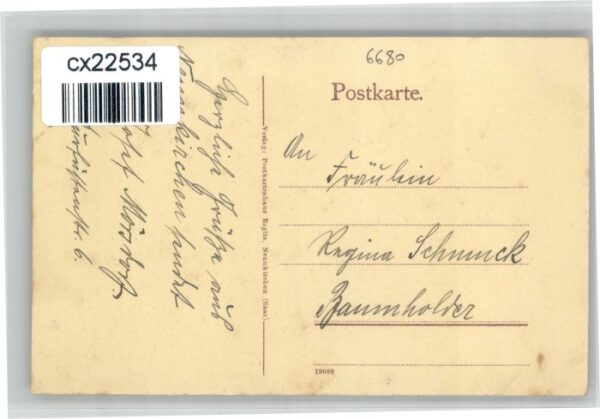 cx22534
6680
Postkarte.
An
Fräulein
Regina Schmuck
Baumholder
19688
Verlag: Postkartenhaus Regitz, Neunkirchen (Saar)
Herzliche Grüße aus
Neunkirchen sendet
Josef Mossdorf.
Kurfürstenstr. 6.